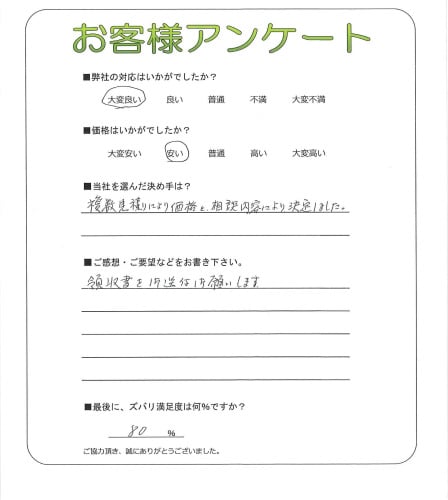 お客様アンケート
■弊社の対応はいかがでしたか？
大変良い 良い 普通 不満 大変不満
■価格はいかがでしたか？
大変安い 安い 普通 高い 大変高い
■当社を選んだ決め手は？
複数見積りにより価格と、相談内容により決定しました。
■ご感想・ご要望などをお書き下さい。
領収書を御送付御願いします
■最後に、ズバリ満足度は何％ですか？
80 ％
ご協力頂き、誠にありがとうございました。